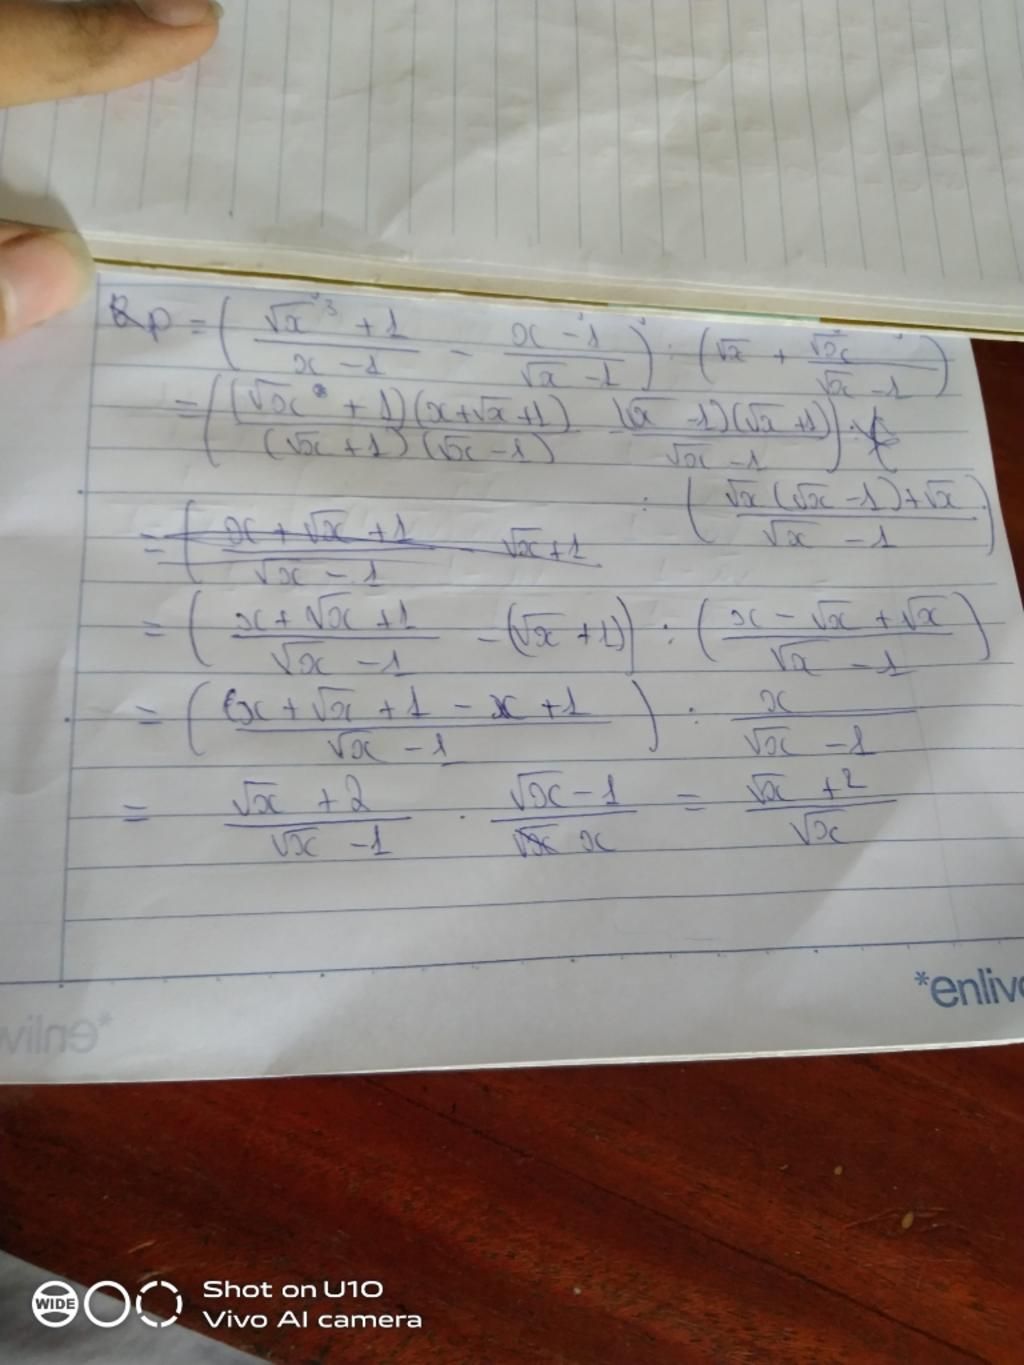 P = ( (√x³ + 1)/(x - 1) - (x - 1)/(√x - 1) ) : (√x + √x/(√x - 1))
= ( (√x + 1)(x + √x + 1)/((√x + 1)(√x - 1)) (√x - 1)(√x + 1)/(√x - 1) )
: ( (√x(√x - 1) + √x)/(√x - 1) )
= ( (x + √x + 1)/(√x - 1) - √x + 1
= ( (x + √x + 1)/(√x - 1) - (√x + 1) ) : ( (x - √x + √x)/(√x - 1) )
= ( (x + √x + 1 - x + 1)/(√x - 1) ) : x/(√x - 1)
= (√x + 2)/(√x - 1) . (√x - 1)/x = (√x + 2)/√x
*enliv
WIDE
Shot on U10
Vivo AI camera